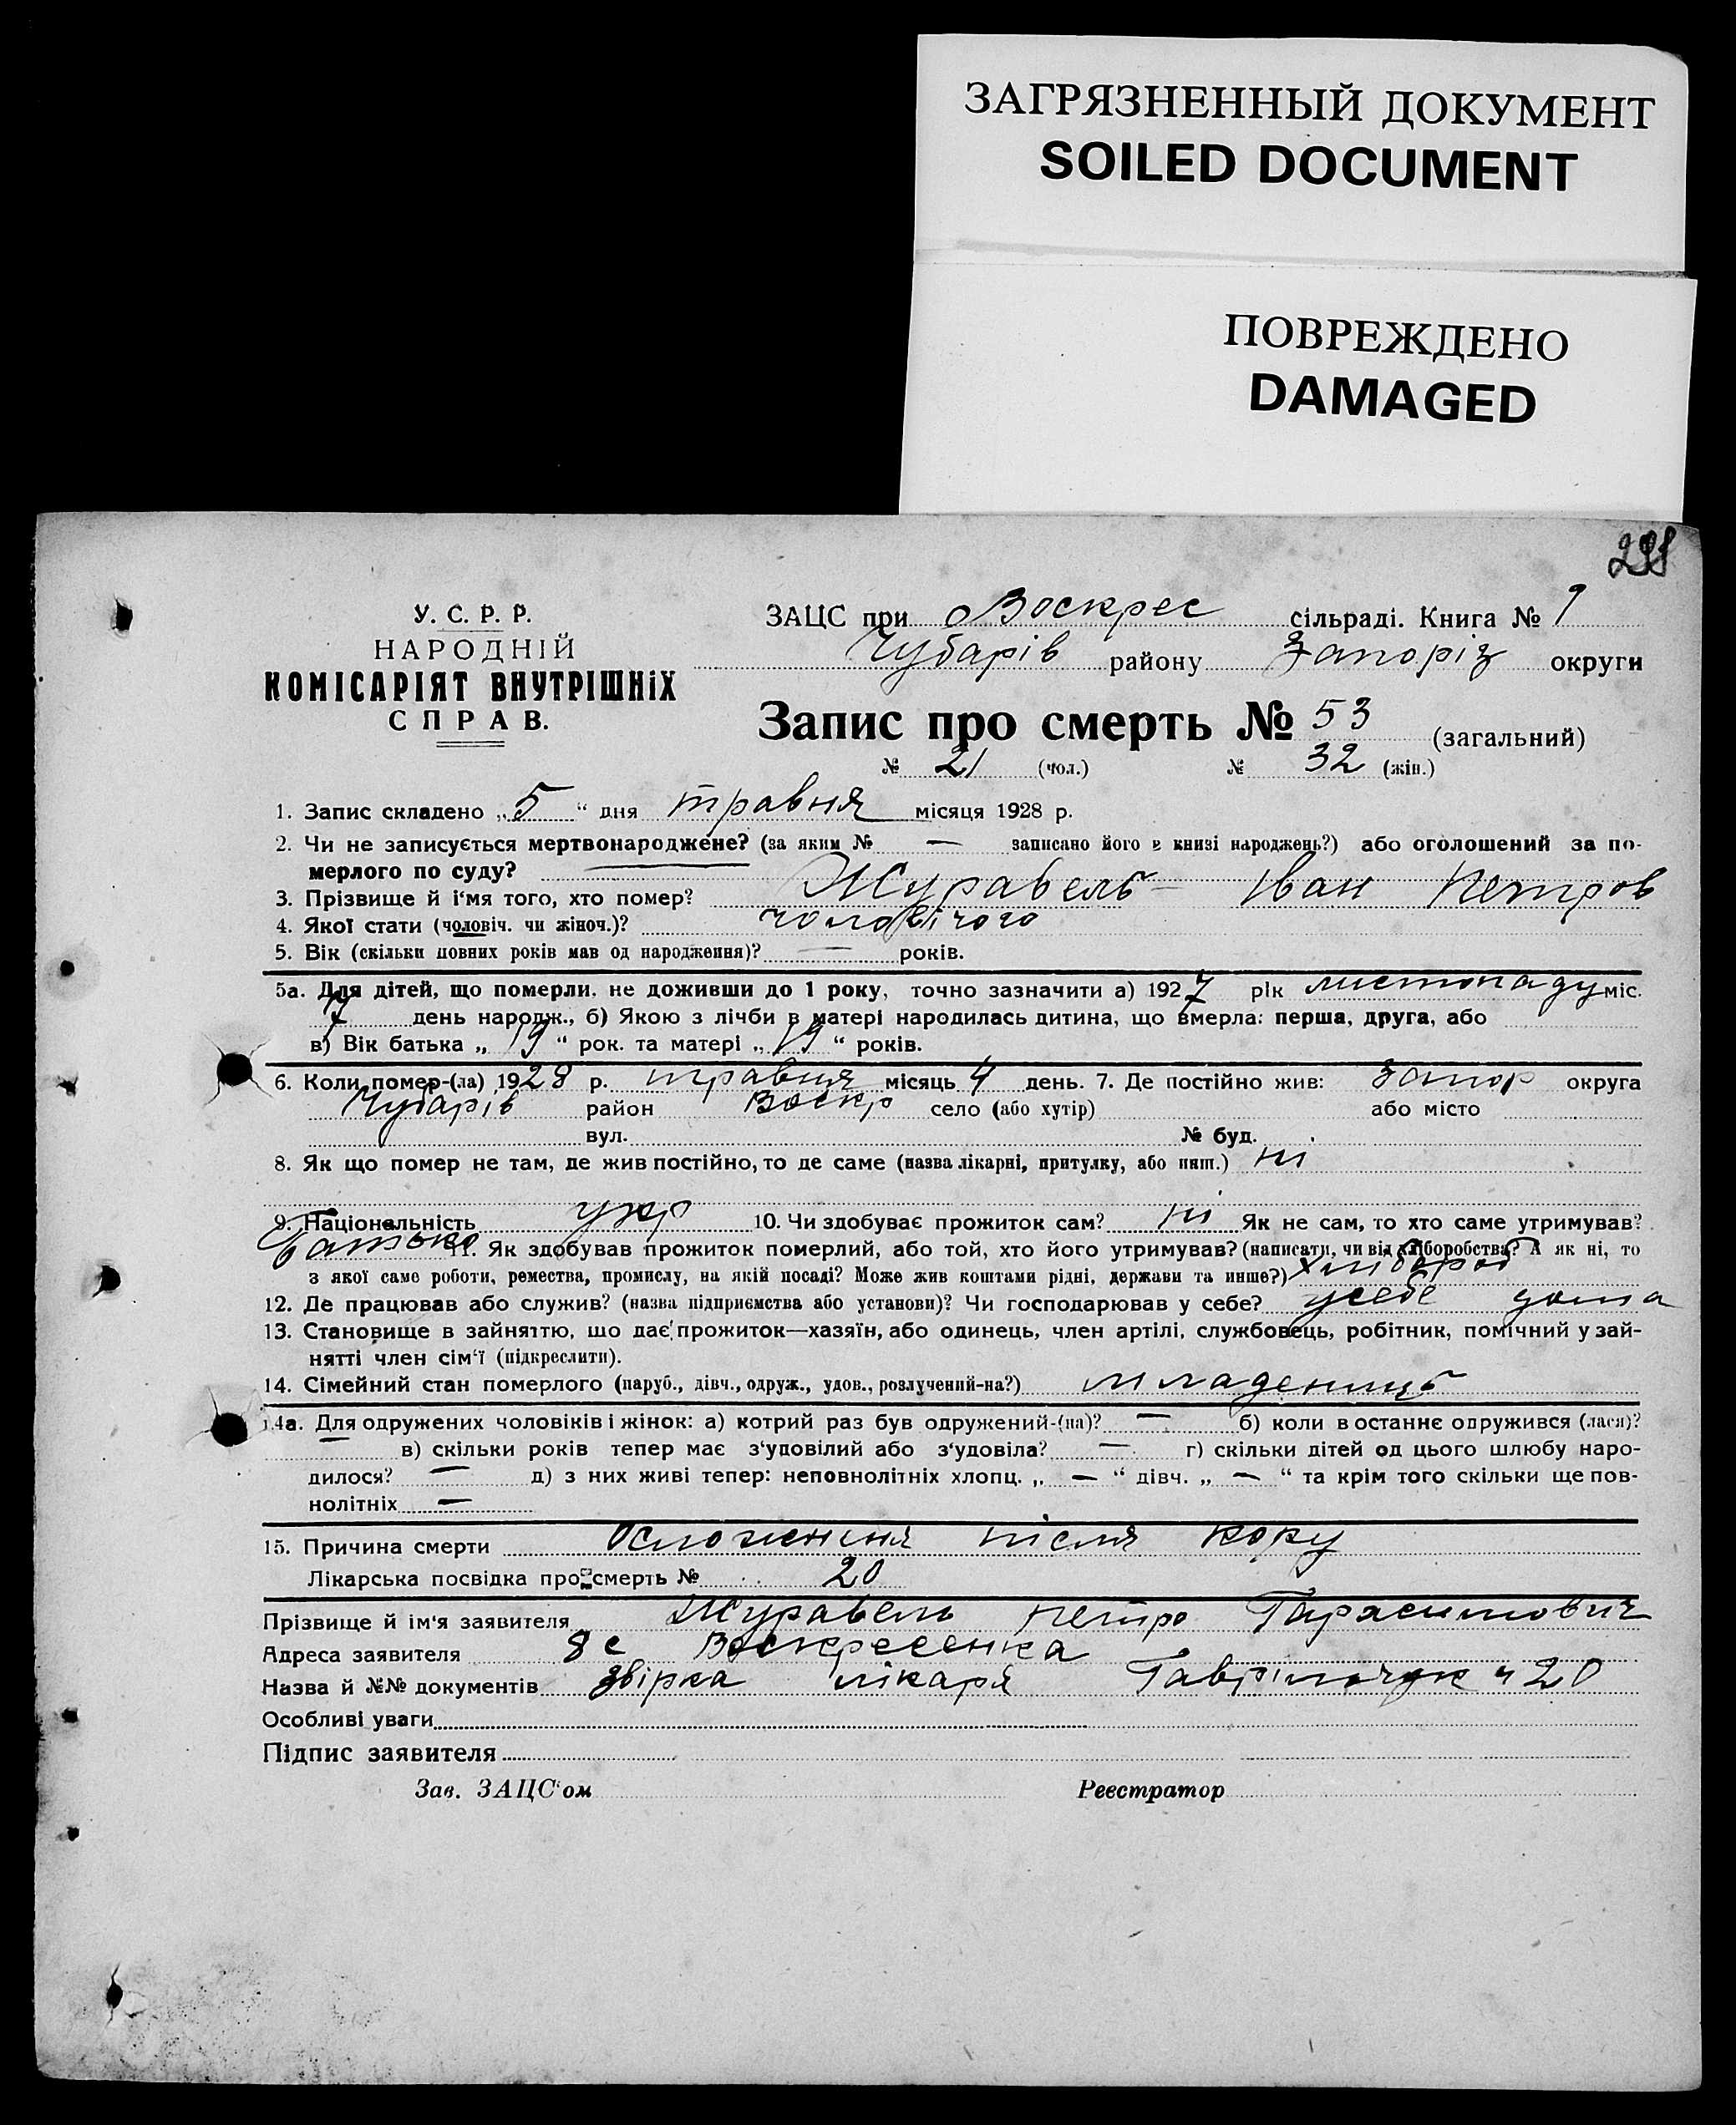 ЗАГРЯЗНЕННЫЙ ДОКУМЕНТ
SOILED DOCUMENT
ПОВРЕЖДЕНО
DAMAGED
У. С. Р. Р.
НАРОДНІЙ
КОМІСАРІЯТ ВНУТРІШНІХ
СПРАВ.
ЗАЦС при Воскрес сільраді. Книга № 1
Чубарів району Запоріз округи
Запис про смерть № 53 (загальний)
№ 21 (чол.) № 32 (жін.)
1. Запис складено „5“ дня травня місяця 1928 р.
2. Чи не записується мертвонароджене? (за яким № — записано його в книзі народжень?) або оголошений за по-
мерлого по суду? —
3. Прізвище й і'мя того, хто помер? Журавель Іван Петров
4. Якої стати (чоловіч. чи жіноч.)? чоловічого
5. Вік (скільки повних років мав од народження)? — років.
5а. Для дітей, що померли, не доживши до 1 року, точно зазначити а) 1927 рік листопаду міс.
7 день народж., б) Якою з лічби в матері народилась дитина, що вмерла: перша, друга, або
в) Вік батька „19“ рок. та матері „19“ років.
6. Коли помер-(ла) 1928 р. травня місяць 4 день. 7. Де постійно жив: Запор округа
Чубарів район Воскр село (або хутір) або місто
вул. № буд.
8. Як що помер не там, де жив постійно, то де саме (назва лікарні, притулку, або инш.) ні
9. Національність укр 10. Чи здобуває прожиток сам? ні Як не сам, то хто саме утримував?
батько 11. Як здобував прожиток померлий, або той, хто його утримував? (написати, чи від хліборобства? А як ні, то
з якої саме роботи, ремества, промислу, на якій посаді? Може жив коштами рідні, держави та инше?) хлібороб
12. Де працював або служив? (назва підприємства або установи)? Чи господарював у себе? у себе дома
13. Становище в зайняттю, що дає прожиток—хазяїн, або одинець, член артілі, службовець, робітник, помічний у зай-
нятті член сім'ї (підкреслити).
14. Сімейний стан померлого (паруб., дівч., одруж., удов., розлучений-на?) младенець
14а. Для одружених чоловіків і жінок: а) котрий раз був одружений-(на)? — б) коли востаннє одружився (лася)?
— в) скільки років тепер має з'уповілий або з'удовіла? — г) скільки дітей од цього шлюбу наро-
дилося? — д) з них живі тепер: неповнолітніх хлопц. „ — “ дівч. „ — “ та крім того скільки ще пов-
нолітніх —
15. Причина смерти Осложнення після кору
Лікарська посвідка про смерть № 20
Прізвище й ім'я заявителя Журавель Петро Гарасимович
Адреса заявителя 8 с Воскресенка
Назва й №№ документів звірка лікаря 20
Особливі уваги
Підпис заявителя
Зав. ЗАЦС'ом Реестратор